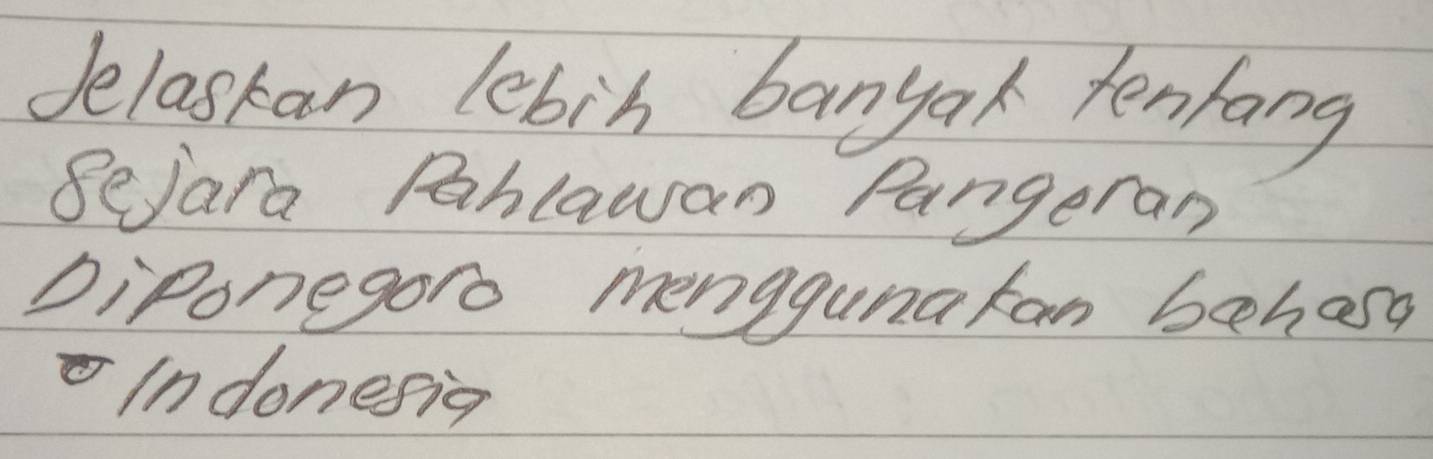 Jelaskan lebih banyak tentang
Sejara Pahlawan Pangeran
Diponegoro menggunakan bahasa
Indonesia